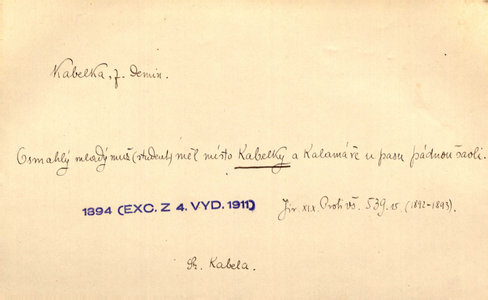 Kabelka, f. Demin.
Osmahlý mladý muž (student) měl místo Kabelky a Kalamáře u pasu pádnou šavli.
1894 (EXC. Z 4. VYD. 1911)
Jir. XIX. Proti vš. 539 (1892-1893).
Sr. Kabela.